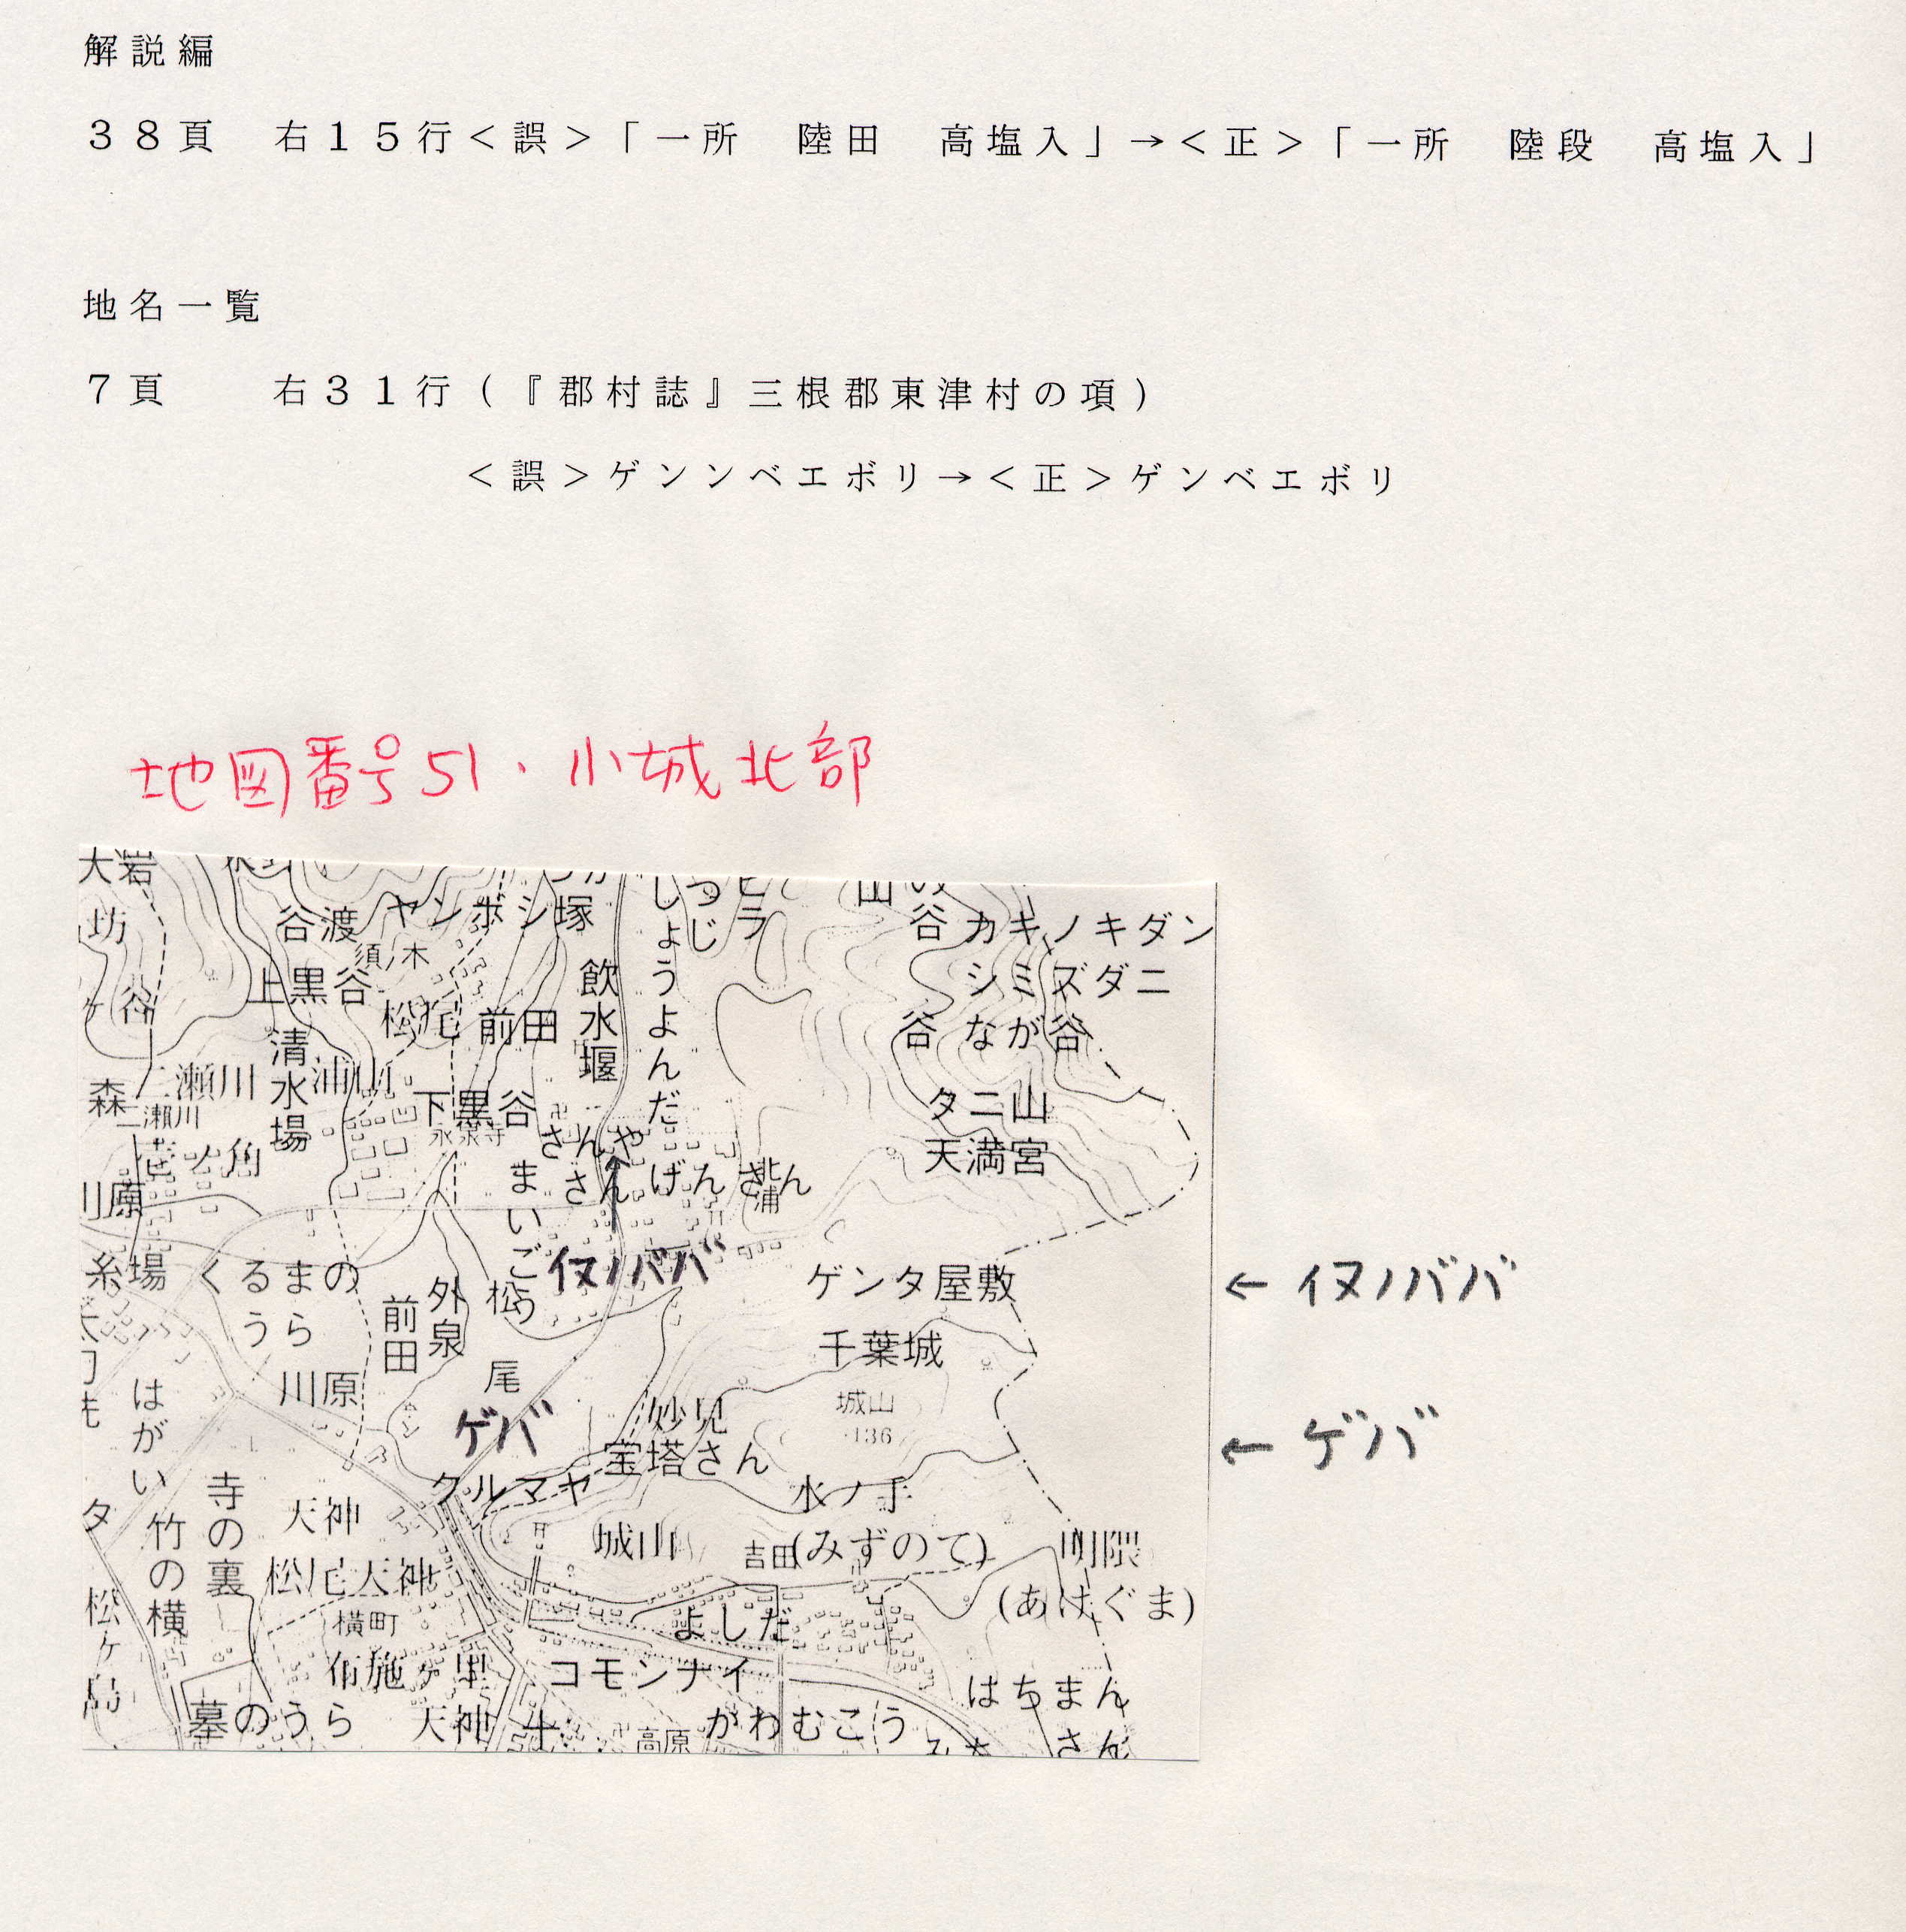 解説編
38頁　右15行<誤>「一所　陸田　高塩入」→<正>「一所　陸段　高塩入」
地名一覧
7頁　　右31行(『郡村誌』三根郡東津村の項)
<誤>ゲンンベエボリ→<正>ゲンベエボリ
地図番号51、小城北部
大岩
坊
谷渡
ヤンボシ塚
須ノ木
上黒谷
松尾
前田
飲水堰
しょうよんだ
つつじ
ヒラ
山の谷
カキノキダン
シミズダニ
谷
なが谷
タニ山
天満宮
清水場
森
二瀬川
浦山
二瀬川
下黒谷
永泉寺
川原
さんや
さん
げんさん
北浦
まいごう
糸場
くるまの
うら
イヌノババ
← イヌノババ
ゲンタ屋敷
千葉城
城山
136
前田
外泉
松
尾
川原
はがい
ゲバ
← ゲバ
妙見
宝塔さん
クルマヤ
水ノ手
(みずのて)
城山
吉田
明隈
(あけぐま)
寺の裏
竹の横
天神
松尾天神
横町
布施ヶ里
よしだ
松ヶ島
コモンナイ
墓のうら
天神
高原
がわむこう
はちまん
さん